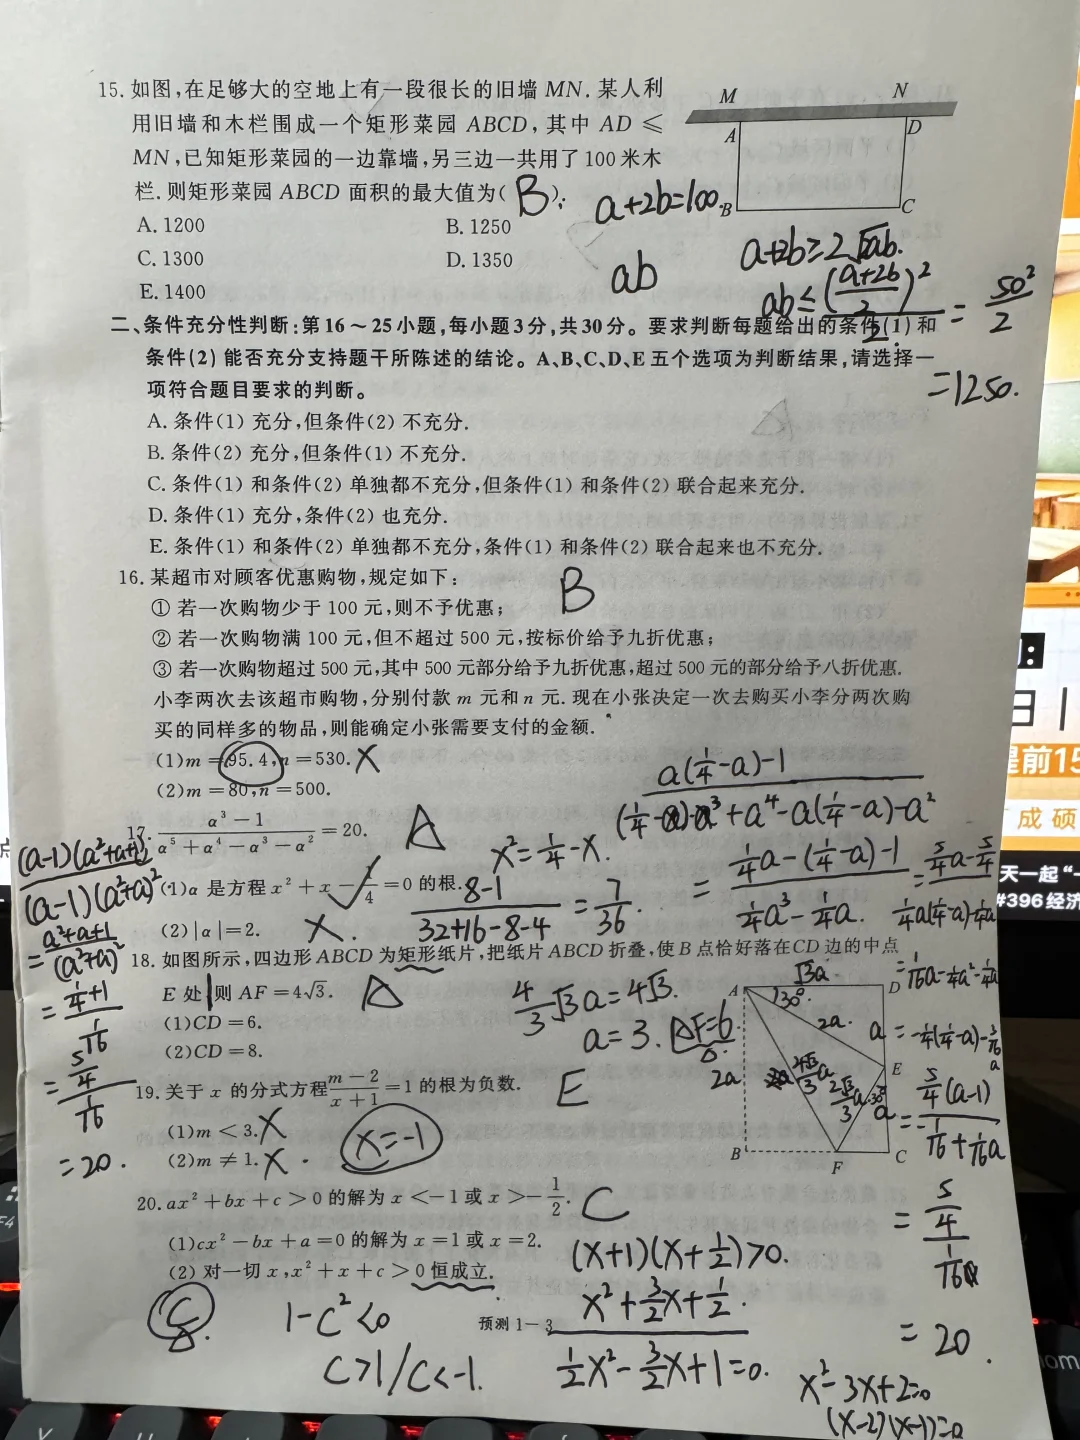 15. 如图,在足够大的空地上有一段很长的旧墙 MN. 某人利
用旧墙和木栏围成一个矩形菜园 ABCD, 其中 AD ⩽
MN,已知矩形菜园的一边靠墙,另三边一共用了 100 米木
栏. 则矩形菜园 ABCD 面积的最大值为( B ).
A. 1200
B. 1250
C. 1300
D. 1350
E. 1400
M
N
A
D
B
C
a+2b=100.
ab
a+2b≥2√2ab.
ab≤((a+2b)/2)²/2 = 50²/2
=1250.
二、条件充分性判断:第 16～25 小题,每小题 3 分,共 30 分。要求判断每题给出的条件(1)和
条件(2)能否充分支持题干所陈述的结论。A、B、C、D、E 五个选项为判断结果,请选择一
项符合题目要求的判断。
A. 条件(1) 充分,但条件(2) 不充分.
B. 条件(2) 充分,但条件(1) 不充分.
C. 条件(1) 和条件(2) 单独都不充分,但条件(1) 和条件(2) 联合起来充分.
D. 条件(1) 充分,条件(2) 也充分.
E. 条件(1) 和条件(2) 单独都不充分,条件(1) 和条件(2) 联合起来也不充分.
16. 某超市对顾客优惠购物,规定如下:
B
① 若一次购物少于 100 元,则不予优惠;
② 若一次购物满 100 元,但不超过 500 元,按标价给予九折优惠;
③ 若一次购物超过 500 元,其中 500 元部分给予九折优惠,超过 500 元的部分给予八折优惠.
小李两次去该超市购物,分别付款 m 元和 n 元. 现在小张决定一次去购买小李分两次购
买的同样多的物品,则能确定小张需要支付的金额.
(1)m = 95.4,n = 530. X
(2)m = 80,n = 500.
17. (α³−1)/(α⁵+α⁴−α³−α²) = 20.
A
(1)α 是方程 x² + x − 1/4 = 0 的根.
(2)|α|=2. X.
x²=1/4-x.
(8-1)/(32+16-8-4) = 7/36.
= (a²+a+1)/(a²+a)²
= (1/4+1)/(1/16)
= (5/4)/(1/16)
=20.
= (5/4)/(1/16)
=20.
18. 如图所示,四边形 ABCD 为矩形纸片,把纸片 ABCD 折叠,使 B 点恰好落在 CD 边的中点
E 处,则 AF = 4√3.
(1)CD = 6.
(2)CD = 8.
4/3√3a=4√3.
a=3.
A
D
E
B
F
C
√3a
30°
2a.
a
2a
4√3/3a
2√3/3a
30°
a
19. 关于 x 的分式方程 (m−2)/(x+1) = 1 的根为负数.
E
(1)m < 3. X
(2)m ≠ 1. X
x=-1
20. ax² + bx + c > 0 的解为 x < −1 或 x > −1/2.
C
(1)cx² − bx + a = 0 的解为 x = 1 或 x = 2.
(2) 对一切 x,x² + x + c > 0 恒成立.
(x+1)(x+1/2)>0.
x²+3/2x+1/2.
1/2x²-3/2x+1=0.
x²-3x+2=0
(x-2)(x-1)=0
1-c²<0
c>1/c<-1.
预测 1－3
日
提前15
成 硕
天一起“
#396经济